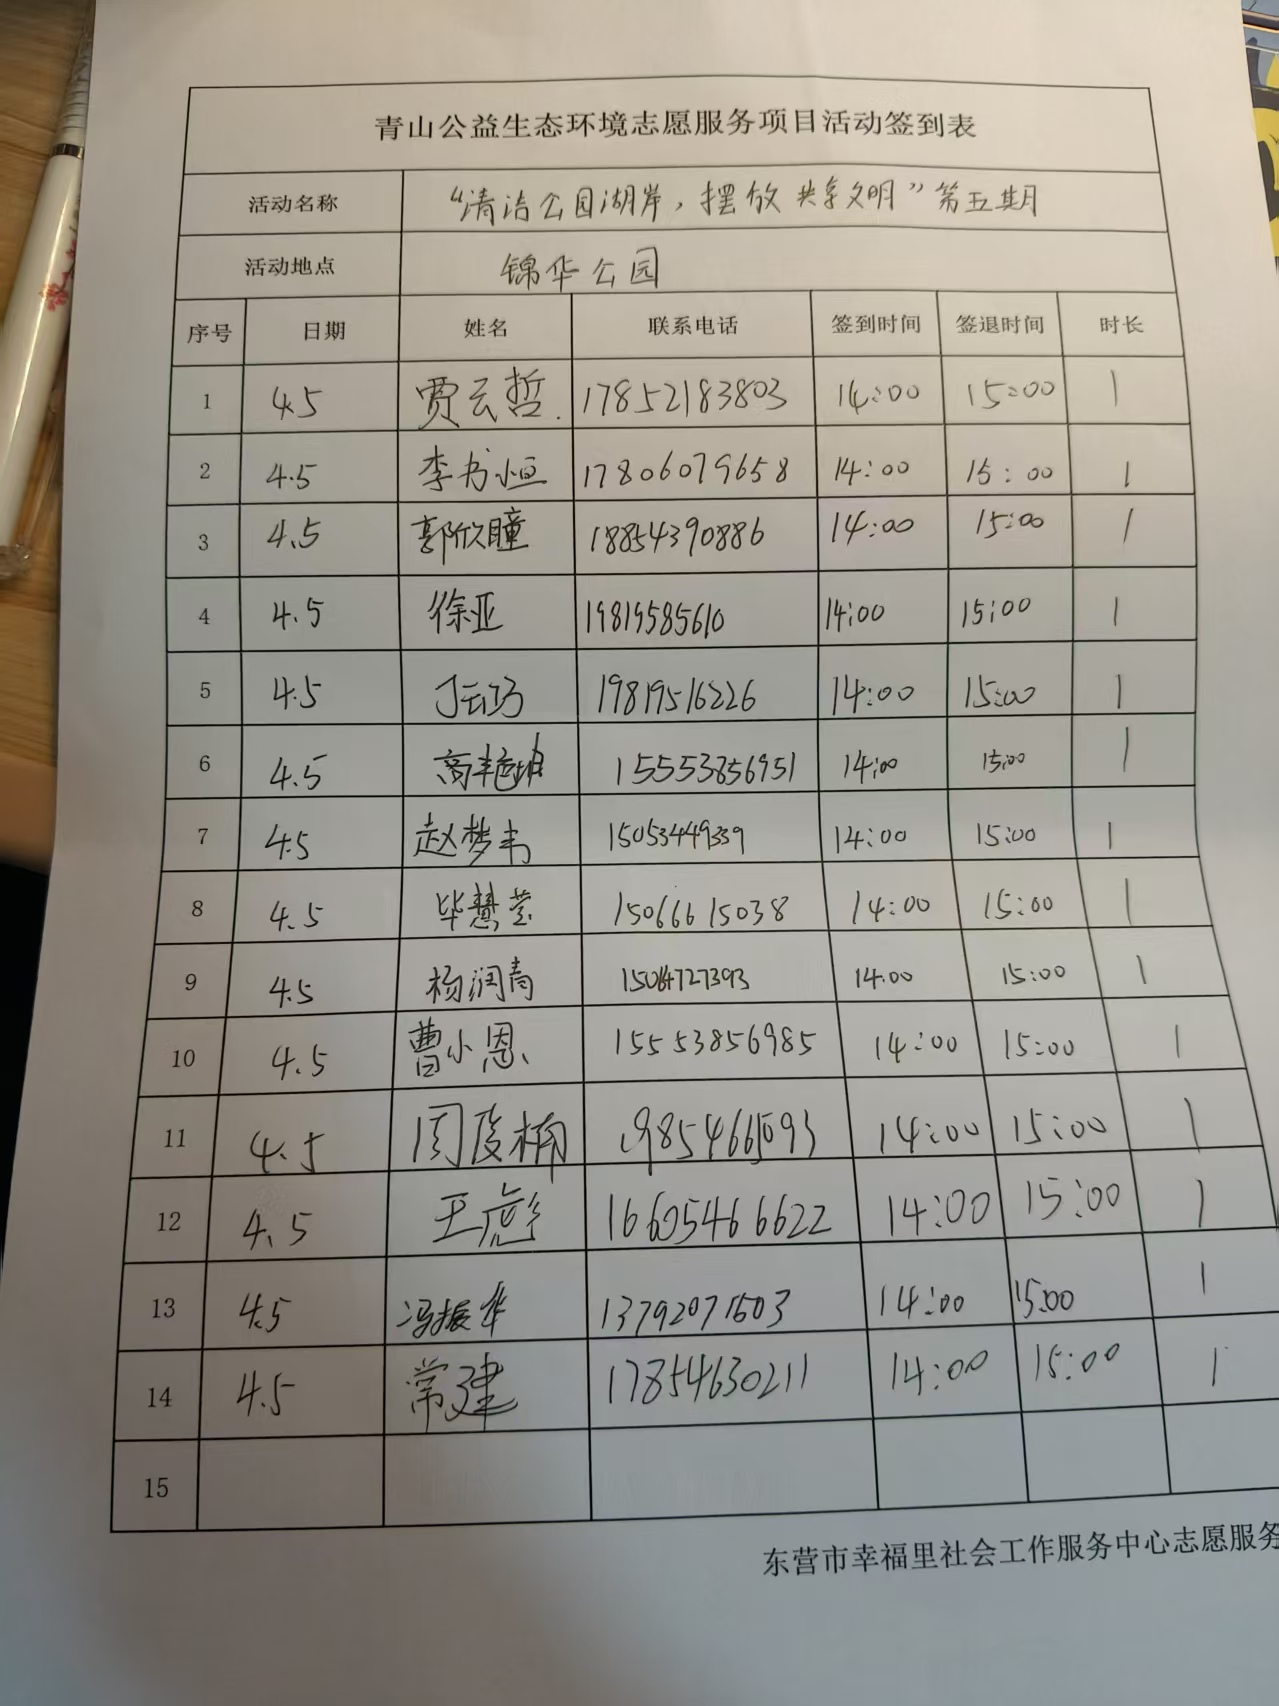 青山公益生态环境志愿服务项目活动签到表
活动名称 “清洁公园湖岸，摆放共享文明”第五期
活动地点 锦华公园
序号 日期 姓名 联系电话 签到时间 签退时间 时长
1 4.5 贾云哲 17852183803 14:00 15:00 1
2 4.5 李书恒 17806079658 14:00 15:00 1
3 4.5 郭欣瞳 18854390886 14:00 15:00 1
4 4.5 徐亚 19819585610 14:00 15:00 1
5 4.5 19819516226 14:00 15:00 1
6 4.5 15553856951 14:00 15:00 1
7 4.5 赵梦韦 15053449339 14:00 15:00 1
8 4.5 毕慧莹 15066615038 14:00 15:00 1
9 4.5 杨润青 15064727393 14:00 15:00 1
10 4.5 曹小恩 15553856985 14:00 15:00 1
11 4.5 周俊楠 14:00 15:00 1
12 4.5 王彪 16605466622 14:00 15:00 1
13 4.5 冯振华 13792071503 14:00 15:00 1
14 4.5 常建 17854630211 14:00 15:00 1
15
东营市幸福里社会工作服务中心志愿服务